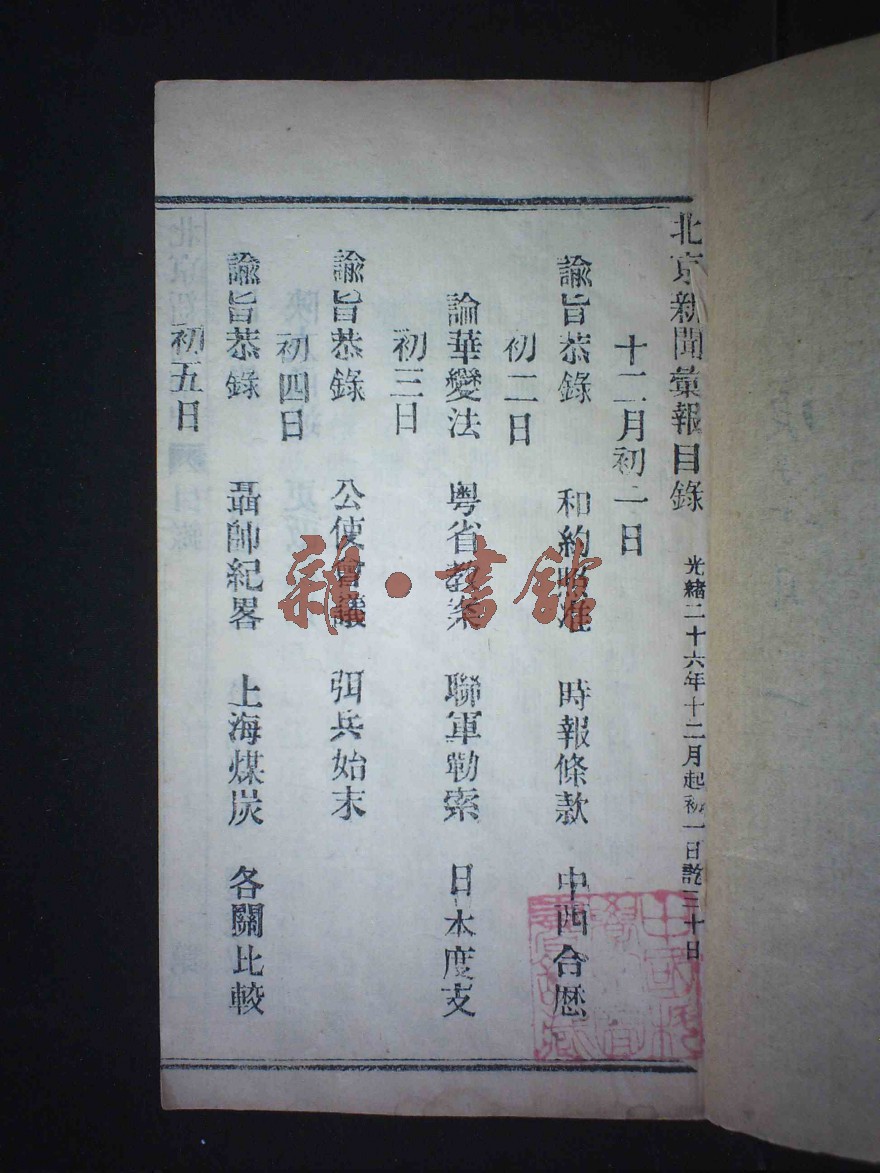 北京新聞彙報目錄 光緒二十六年十二月起初一日訖三十日
十二月初二日
諭旨恭錄 和約略准 時報條款 中西合厯
初二日
論華變法 粵省教案 聯軍勒索 日本度支
初三日
諭旨恭錄 公使會議 弭兵始末
初四日
諭旨恭錄 聶帥紀畧 上海煤炭 各關比較
初五日
雜·書館